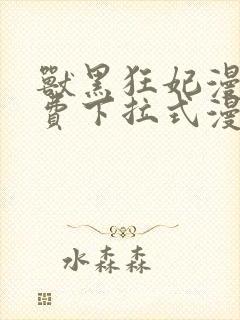 獸黑狂妃漫
費下拉式漫
水森森